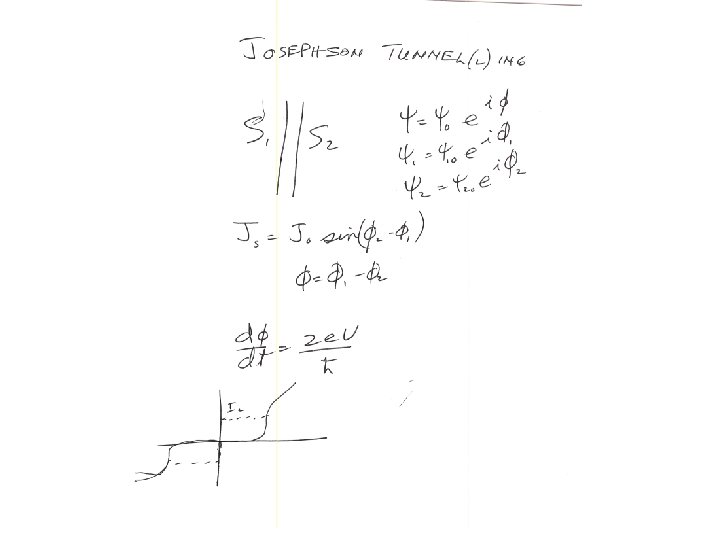 JOSEPHSON TUNNEL(L)ING
S₁ || S₂
ψ = ψ₀ e^{iϕ}
ψ₁ = ψ₁₀ e^{iϕ₁}
ψ₂ = ψ₂₀ e^{iϕ₂}
J_s = J₀ sin(ϕ₂-ϕ₁)
ϕ = ϕ₁ - ϕ₂
dϕ/dt = 2eV/ħ